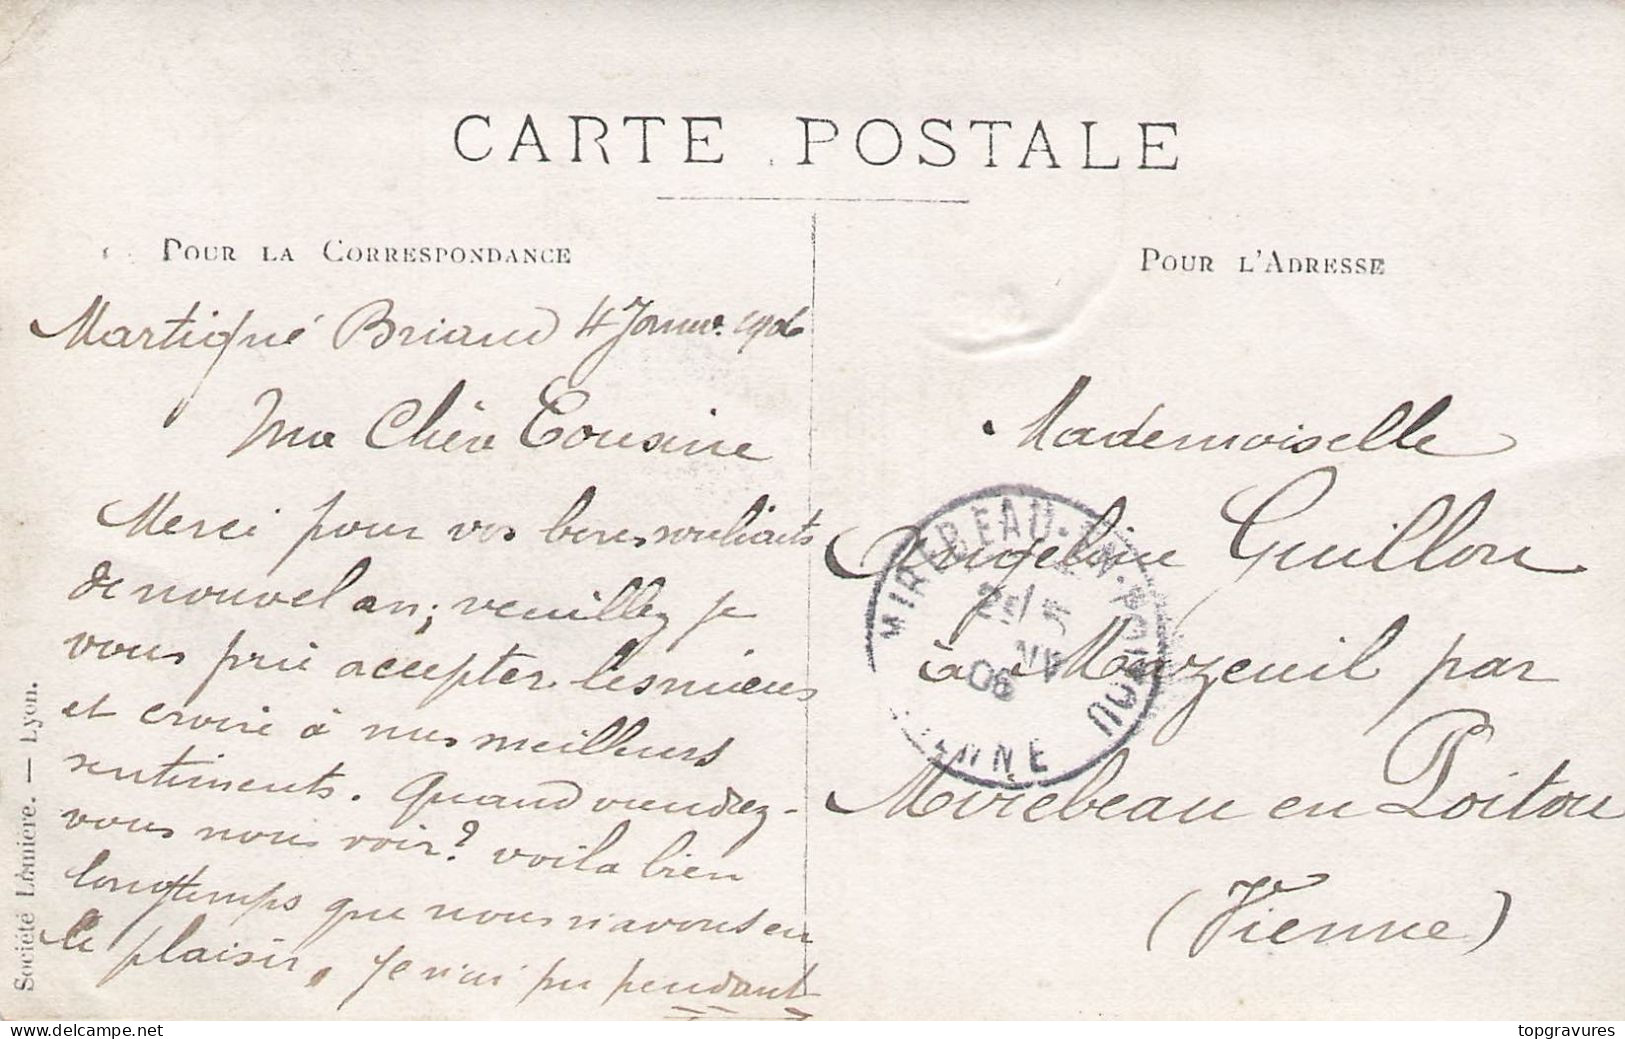 CARTE POSTALE
POUR LA CORRESPONDANCE
POUR L'ADRESSE
Martigné Briand 4 Janv. 1906
Ma Chère Cousine
Merci pour vos bons souhaits
de nouvel an; veuillez je
vous prie accepter les miens
et croire à mes meilleurs
sentiments. Quand viendrez-
vous nous voir? voila bien
longtemps que nous n'avons eu
le plaisir, je n'ai pu pendant
Mademoiselle
Angeline Guillon
à Mazeuil par
Mirebeau en Poitou
(Vienne)
MIREBEAU-EN-POITOU
06
VIENNE
Société Lumière. — Lyon.
https://www.delcampe.net
topgravures